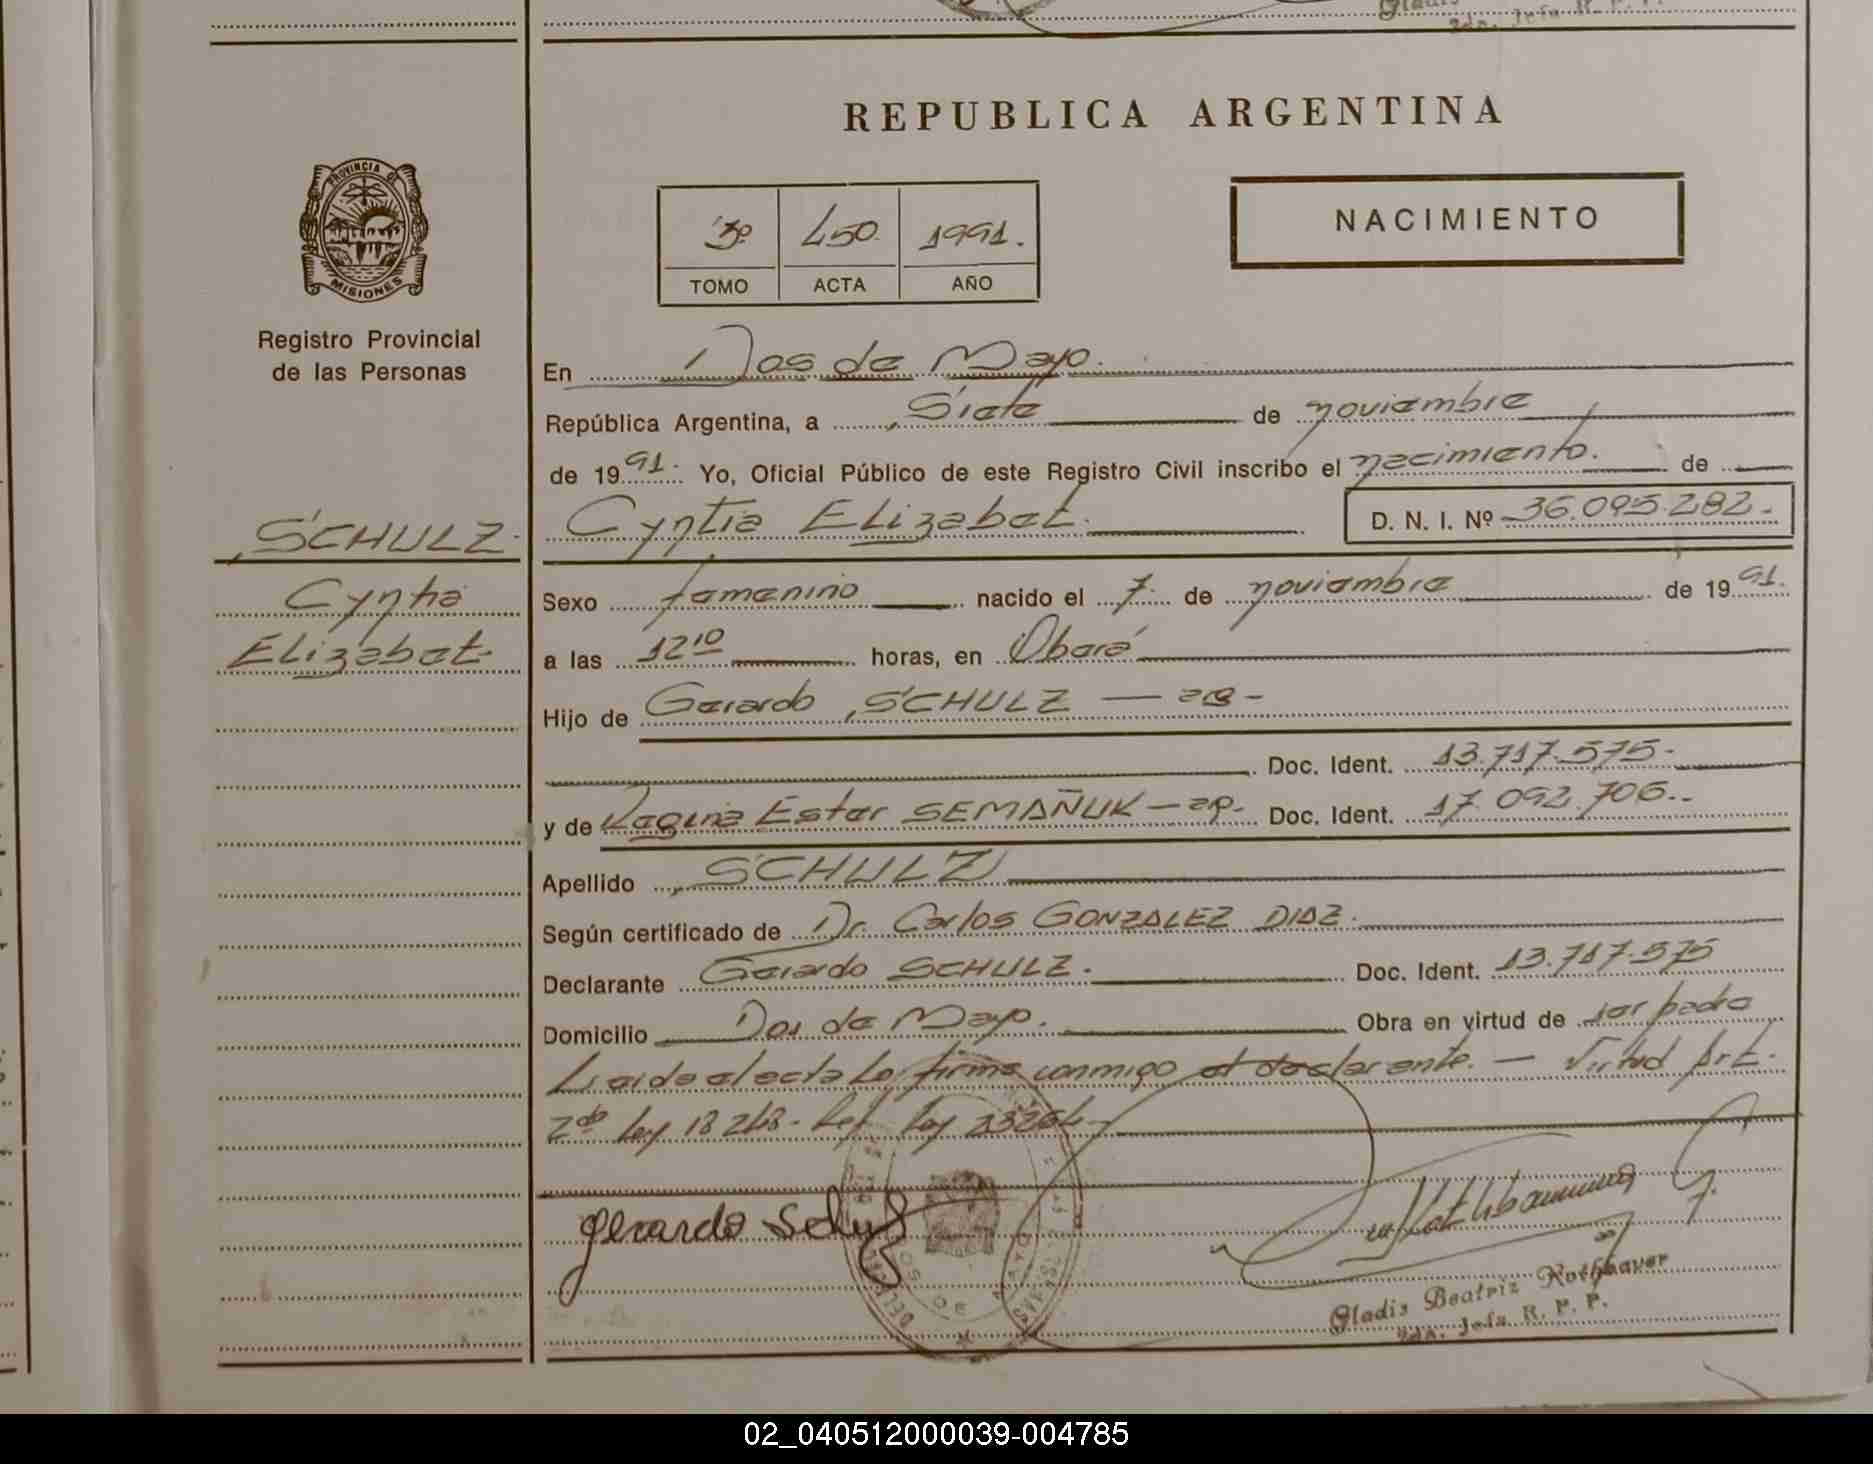 REPUBLICA ARGENTINA
PROVINCIA DE
MISIONES
Registro Provincial
de las Personas
3º 450. 1991.
TOMO ACTA AÑO
NACIMIENTO
En Dos de Mayo.
República Argentina, a Siete de noviembre
de 1991. Yo, Oficial Público de este Registro Civil inscribo el nacimiento. de
Cyntia Elizabet. D. N. I. Nº 36.095.282.-
SCHULZ.
Cyntia
Elizabet.-
Sexo femenino nacido el 7. de noviembre de 1991.
a las 12 10 horas, en Oberá
Hijo de Gerardo SCHULZ —
Doc. Ident. 13.717.575.-
y de Ester SEMAÑUK — Doc. Ident. 17.092.706.-
Apellido SCHULZ
Según certificado de Dr. Carlos GONZALEZ DIAZ.
Declarante Gerardo SCHULZ. Doc. Ident. 13.717.575
Domicilio Dos de Mayo. Obra en virtud de ser padre
Leida el acta la firma conmigo el declarante. — Virtud Art.
2do ley 18248.- Ley 23264
Gerardo Schulz
DOS DE MAYO
Gladis Beatriz Rothbaver
2da. Jefa R. P. P.
02_040512000039-004785